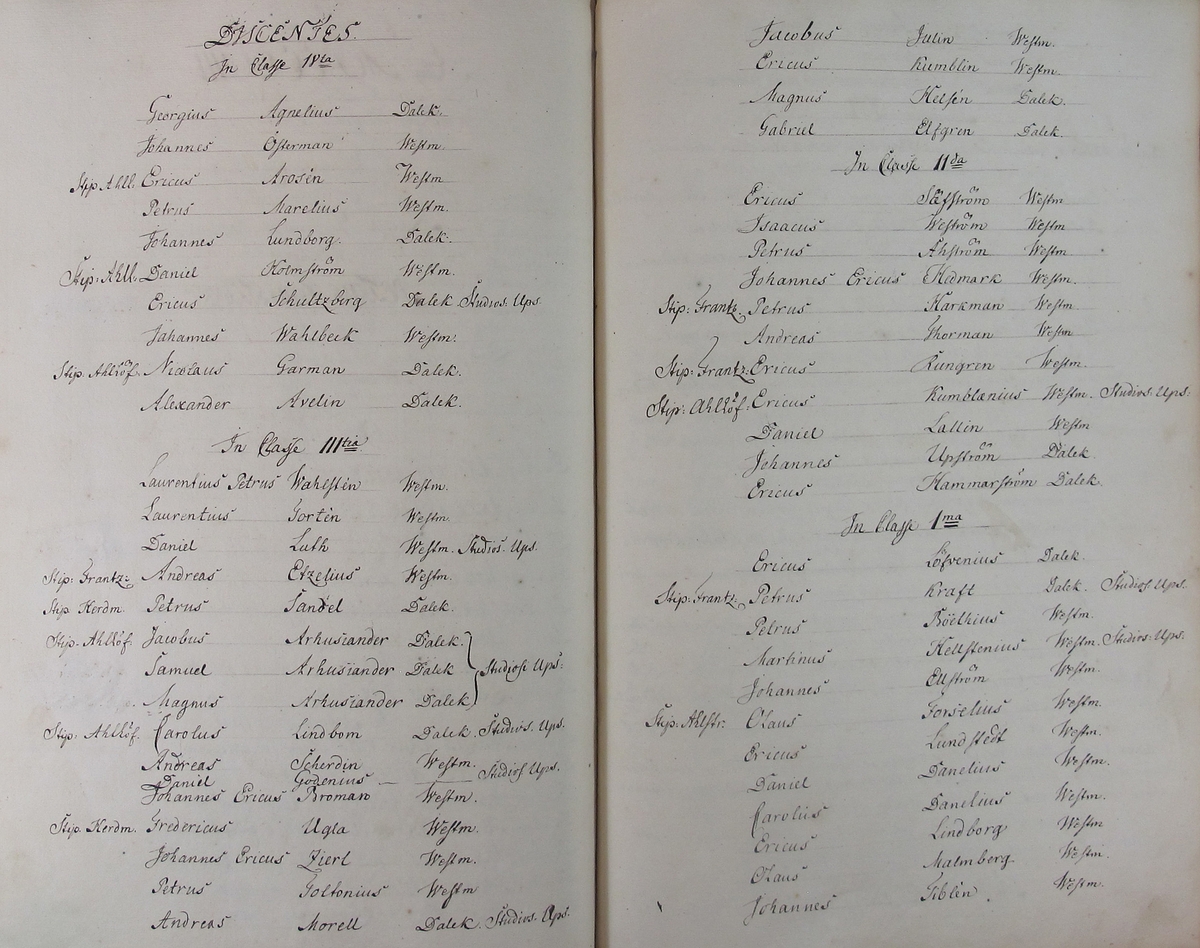 DISCENTES.
In Classe IVta
Georgius Agnelius Dalek.
Johannes Österman Westm.
Stip. Ahll. Ericus Arosén Westm.
Petrus Marelius Westm.
Johannes Lundborg. Dalek.
Stip: Ahll. Daniel Holmström Westm.
Ericus Schultzberg Dalek. Studios. Ups.
Johannes Wahlbeck Westm.
Stip. Ahllöf. Nicolaus Garman Dalek.
Alexander Avelin Dalek.
In Classe IIItia
Laurentius Petrus Wahlstén Westm.
Laurentius Tortén Westm.
Daniel Luth Westm. Studios. Ups.
Stip: Frantz: Andreas Etzelius Westm.
Stip. Herdm. Petrus Sandel Dalek.
Stip. Ahllöf. Jacobus Arhusiander Dalek.
Samuel Arhusiander Dalek Studiose Ups:
Magnus Arhusiander Dalek
Stip: Ahllöf. Carolus Lindbom Dalek. Studios. Ups.
Andreas Scherdin Westm.
Daniel Godenius — Studios Ups.
Johannes Ericus Broman Westm.
Stip. Herdm. Fredericus Ugla Westm.
Johannes Ericus Zierl Westm.
Petrus Toltonius Westm
Andreas Morell Dalek. Studios. Ups.
Jacobus Julin Westm.
Ericus Kumblin Westm.
Magnus Helsén Dalek.
Gabriel Elfgren Dalek.
In Classe IIda
Ericus Säfström Westm
Isaacus Weström Westm
Petrus Åhström Westm.
Johannes Ericus Hedmark Westm.
Stip: Frantz. Petrus Harkman Westm.
Andreas Thorman Westm
Stip: Frantz: Ericus Rungren Westm.
Stip: Ahllöf. Ericus Kumblænius Westm. Studios. Ups.
Daniel Lallin Westm
Johannes Upström Dalek
Ericus Hammarström Dalek.
In Classe Ima
Ericus Löfvenius Dalek.
Stip: Frantz. Petrus Kraft Dalek. Studios. Ups.
Petrus Böethius Westm.
Martinus Hellstenius Westm. Studios: Ups.
Johannes Ellström Westm.
Stip: Ahlstr: Olaus Torselius Westm.
Ericus Lundstedt Westm.
Daniel Danelius Westm.
Carolus Danelius Westm.
Ericus Lindborg Westm
Olaus Malmberg Westm.
Johannes Tiblén. Westm.